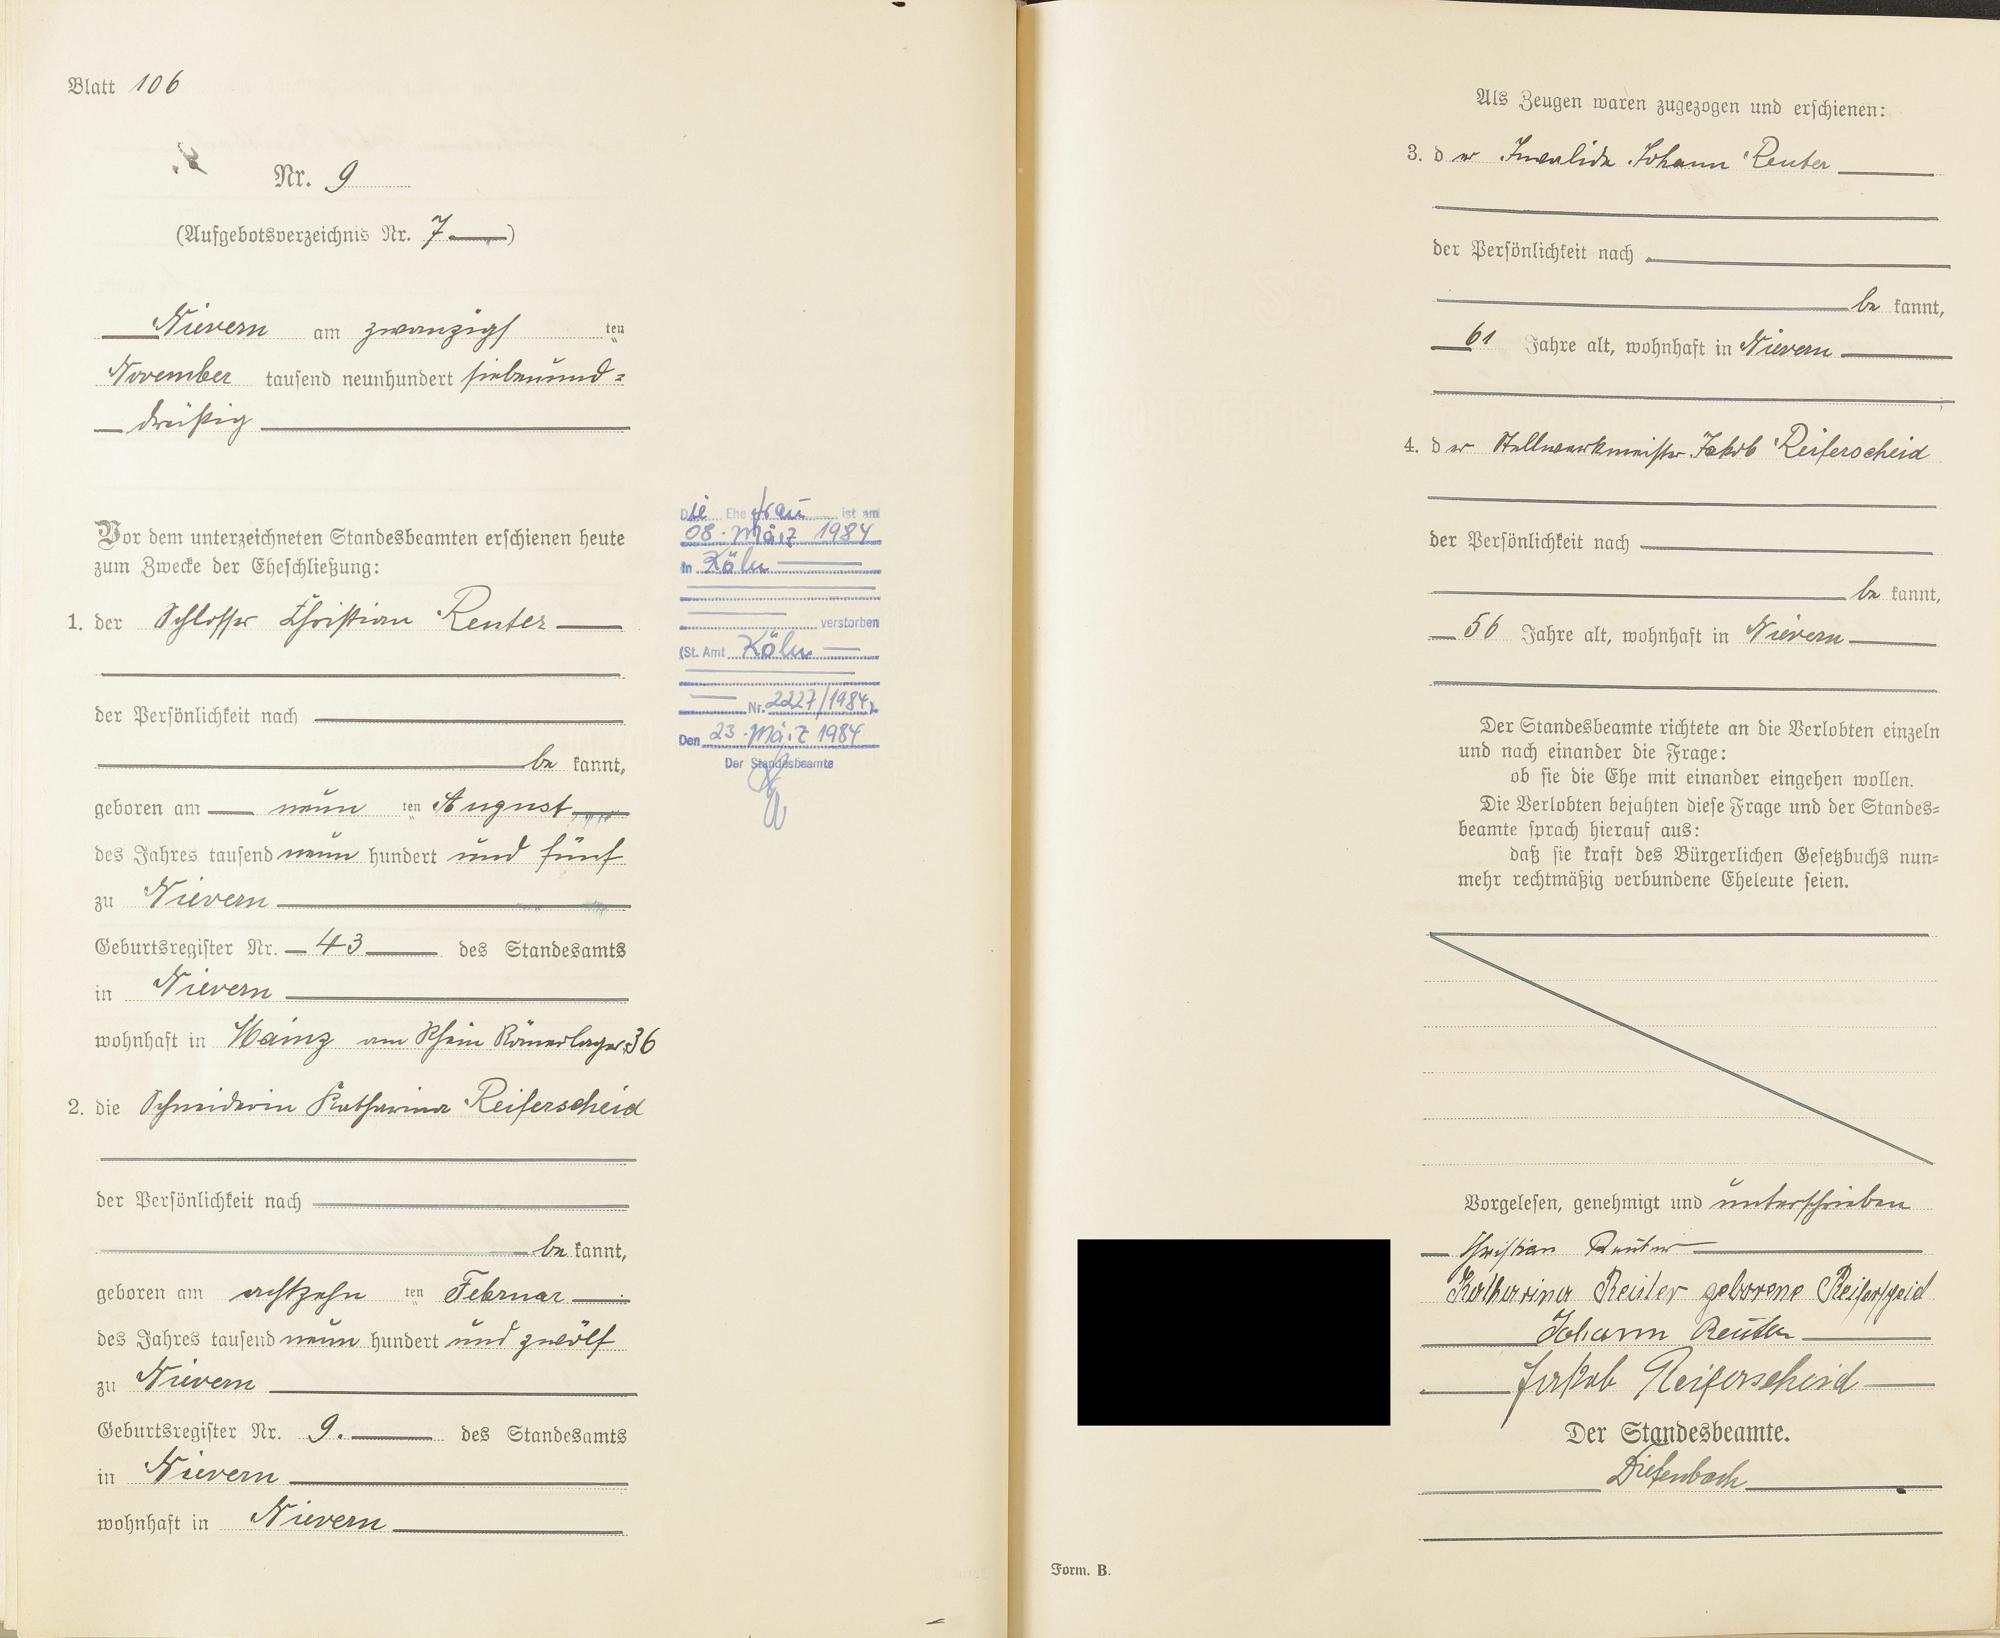 Blatt 106
Nr. 9
(Aufgebotsverzeichnis Nr. 7)
Nievern am zwanzigsten
November tausend neunhundert siebenund=
dreißig
Vor dem unterzeichneten Standesbeamten erschienen heute
zum Zwecke der Eheschließung:
1. der Schlosser Christian Reuter
der Persönlichkeit nach
be kannt,
geboren am neun ten August
des Jahres tausend neun hundert und fünf
zu Nievern
Geburtsregister Nr. 43 des Standesamts
in Nievern
wohnhaft in Mainz am Rhein Römerlager 36
2. die Schneiderin Katharina Reiferscheid
der Persönlichkeit nach
be kannt,
geboren am achtzehn ten Februar
des Jahres tausend neun hundert und zwölf
zu Nievern
Geburtsregister Nr. 9. des Standesamts
in Nievern
wohnhaft in Nievern
Die Ehefrau ist am
08. März 1984
in Köln
verstorben
(St. Amt Köln
Nr. 2227/1984).
Den 23. März 1984
Der Standesbeamte
Als Zeugen waren zugezogen und erschienen:
3. der Invalide Johann Reuter
der Persönlichkeit nach
be kannt,
61 Jahre alt, wohnhaft in Nievern
4. der Stellwerkmeister Jakob Reiferscheid
der Persönlichkeit nach
be kannt,
56 Jahre alt, wohnhaft in Nievern
Der Standesbeamte richtete an die Verlobten einzeln
und nach einander die Frage:
ob sie die Ehe mit einander eingehen wollen.
Die Verlobten bejahten diese Frage und der Standes=
beamte sprach hierauf aus:
daß sie kraft des Bürgerlichen Gesetzbuchs nun=
mehr rechtmäßig verbundene Eheleute seien.
Vorgelesen, genehmigt und unterschrieben
Christian Reuter
Katharina Reuter geborene Reiferscheid
Johann Reuter
Jakob Reiferscheid
Der Standesbeamte.
Diefenbach
Form. B.